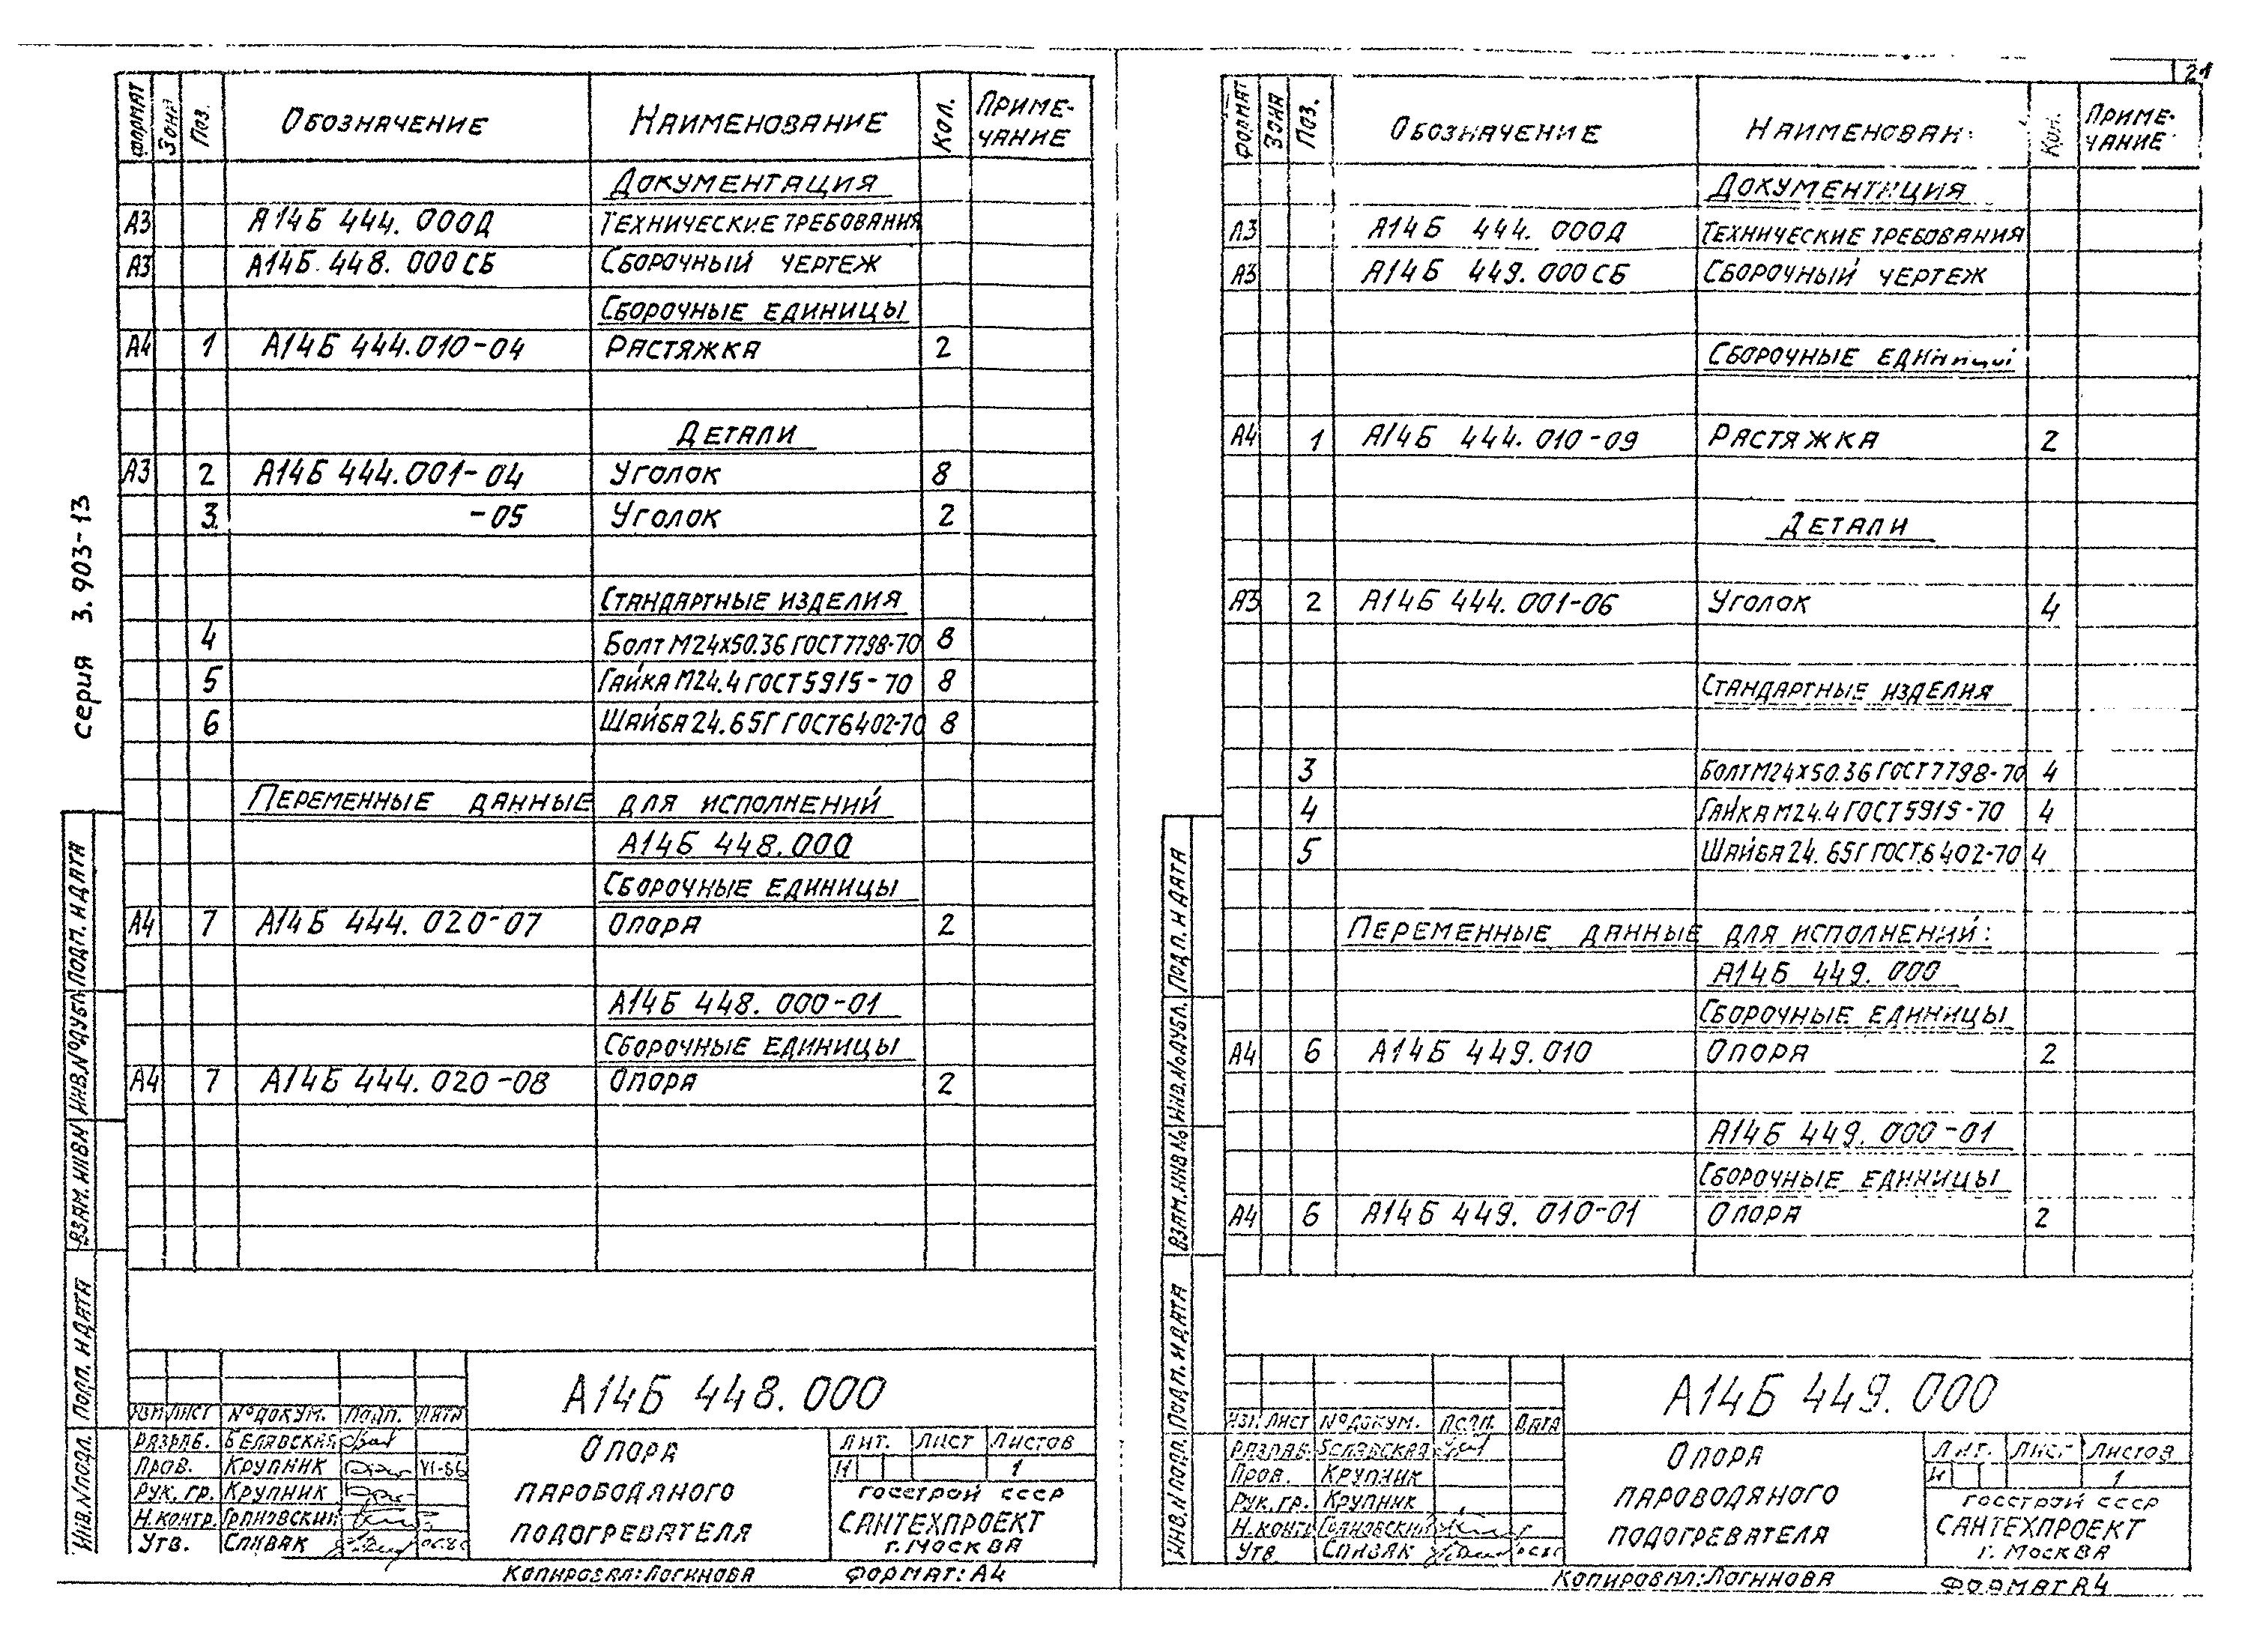 серия 3.903-13
Формат Зона Поз. Обозначение Наименование Кол. Приме-
чание
Документация
А3 А14Б 444. 000Д Технические требования
А3 А14Б 448. 000 СБ Сборочный чертеж
Сборочные единицы
А4 1 А14Б 444.010-04 Растяжка 2
Детали
А3 2 А14Б 444.001-04 Уголок 8
3 -05 Уголок 2
Стандартные изделия
4 Болт М24х50.36 ГОСТ 7798-70 8
5 Гайка М24.4 ГОСТ 5915-70 8
6 Шайба 24.65Г ГОСТ 6402-70 8
Переменные данные для исполнений
А14Б 448.000
Сборочные единицы
А4 7 А14Б 444. 020-07 Опора 2
А14Б 448. 000-01
Сборочные единицы
А4 7 А14Б 444. 020-08 Опора 2
Инв.N подл. Подп. и дата Взам. инв N Инв.№ дубл. Подп. и дата
А14Б 448. 000
Изм Лист № докум. Подп. Дата
Разраб. Белявская
Пров. Крупник VI-86
Рук. гр. Крупник
Н. контр.
Утв. Спивак
Опора
пароводяного
подогревателя
Лит. Лист Листов
И 1
Госстрой СССР
САНТЕХПРОЕКТ
г. Москва
Копировал: Логинова Формат: А4
21
Формат Зона Поз. Обозначение Наименован Кол. Приме-
чание
Документация
А3 А14Б 444. 000Д Технические требования
А3 А14Б 449. 000 СБ Сборочный чертеж
Сборочные единицы
А4 1 А14Б 444. 010-09 Растяжка 2
Детали
А3 2 А14Б 444. 001-06 Уголок 4
Стандартные изделия
3 Болт М24х50.36 ГОСТ 7798-70 4
4 Гайка М24.4 ГОСТ 5915-70 4
5 Шайба 24. 65Г ГОСТ 6402-70 4
Переменные данные для исполнений:
А14Б 449. 000
Сборочные единицы
А4 6 А14Б 449.010 Опора 2
А14Б 449. 000-01
Сборочные единицы
А4 6 А14Б 449. 010-01 Опора 2
Инв.N подл. Подп. и дата Взам. инв № Инв.№ дубл. Подп. и дата
А14Б 449. 000
Изм Лист № докум. Подп. Дата
Разраб. Белявская
Пров. Крупник
Рук. гр. Крупник
Н. контр
Утв. Спивак
Опора
пароводяного
подогревателя
Лит. Лист Листов
И 1
Госстрой СССР
САНТЕХПРОЕКТ
г. Москва
Копировал: Логинова Формат А4